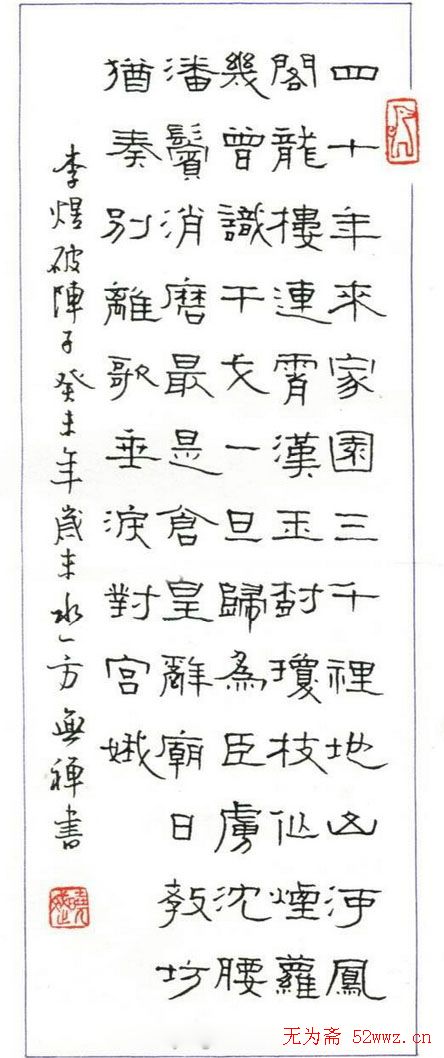 四十年來家園三千裡地山河鳳
閣龍樓連霄漢玉樹瓊枝似煙蘿
幾曾識干戈一旦歸為臣虜沈腰
潘鬢消磨最是倉皇辭廟日教坊
猶奏別離歌垂淚對宮娥
李煜破陣子癸未年歲末水一方無禪書
无为斋 52wwz.cn